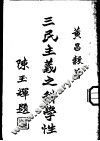 黃昌穀著
三民主義之科學性
陳玉輝題